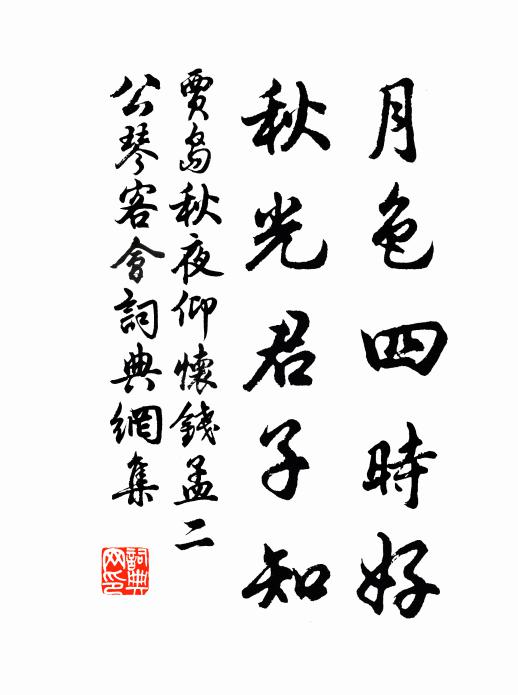 月色四時好
秋光君子知
賈島秋夜仰懷錢孟二
公琴客會詞典網集
詞典
网印